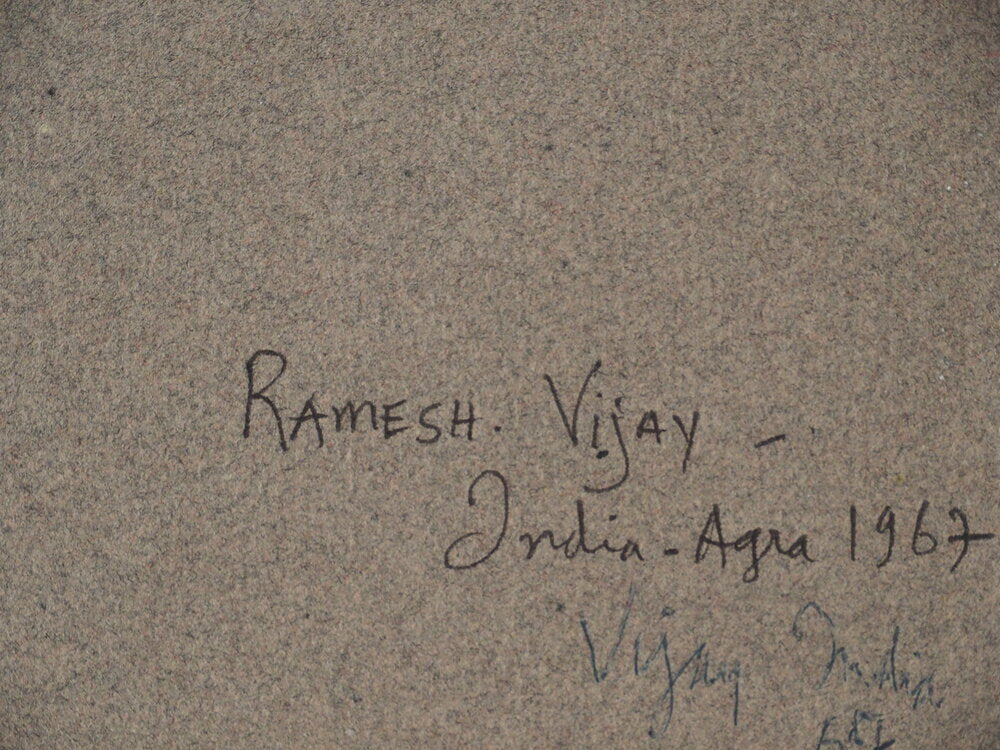 RAMESH. Vijay -
India - Agra 1967
Vijay India